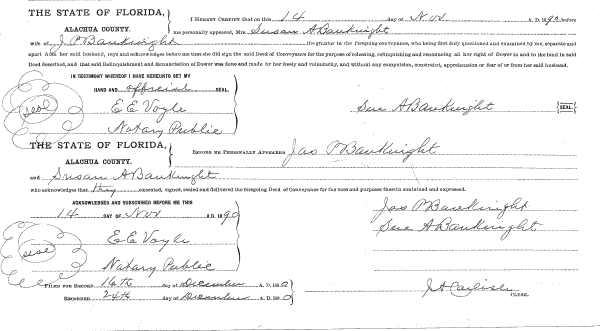 THE STATE OF FLORIDA, I HEREBY CERTIFY that on this 14 day of Nov A. D. 1890 before
ALACHUA COUNTY. me personally appeared, Mrs. Susan A Bauknight
wife of J P Bauknight the grantor in the foregoing conveyance, who being first duly questioned and examined by me, separate and
apart from her said husband, says and acknowledges before me that she did sign the said Deed of Conveyance for the purpose of releasing, relinquishing and renouncing all her right of Dower in and to the land in said
Deed described, and that said Relinquishment and Renunciation of Dower was done and made by her freely and voluntarily, and without any compulsion, constraint, apprehension or fear of or from her said husband.
IN TESTIMONY WHEREOF I HAVE HEREUNTO SET MY
HAND AND official SEAL.
seal E E Voyle Sue A Bauknight {SEAL}
Notary Public
THE STATE OF FLORIDA,
ALACHUA COUNTY. BEFORE ME PERSONALLY APPEARED Jas P Bauknight
and Susan A Bauknight
who acknowledges that they executed, signed, sealed and delivered the foregoing Deed of Conveyance for the uses and purposes therein contained and expressed.
ACKNOWLEDGED AND SUBSCRIBED BEFORE ME THIS
14 DAY OF Nov A. D. 1890 Jas P Bauknight
E E Voyle Sue A Bauknight
seal
Notary Public
FILED FOR RECORD 16th day of December A. D. 1890
RECORDED 24th day of December A. D. 1890
J A Carlisle
CLERK.